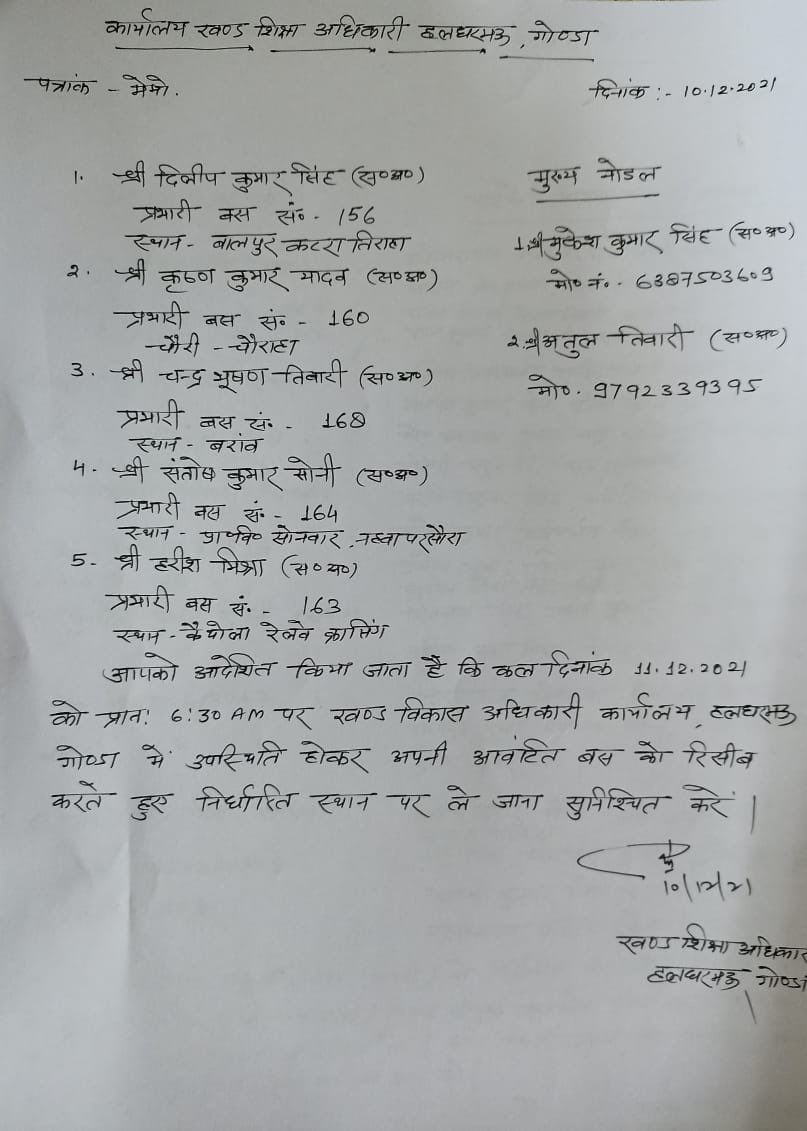 कार्यालय खण्ड शिक्षा अधिकारी हलधरमऊ, गोण्डा
पत्रांक - मेमो. दिनांक :- 10.12.2021
1. श्री दिलीप कुमार सिंह (स०अ०)
प्रभारी बस सं० - 156
स्थान - बालपुर कटरा तिराहा
2. श्री कृष्ण कुमार यादव (स०अ०)
प्रभारी बस सं. - 160
चौरी - चौराहा
3. श्री चन्द्र भूषण तिवारी (स०अ०)
प्रभारी बस सं. - 168
स्थान - बरांव
4. श्री संतोष कुमार सोनी (स०अ०)
प्रभारी बस सं. - 164
स्थान - प्रा०वि० सोनवार, नहवा परसौरा
5. श्री हरीश मिश्रा (स०अ०)
प्रभारी बस सं. - 163
स्थान - कैथोला रेलवे क्रासिंग
मुख्य नोडल
1. श्री मुकेश कुमार सिंह (स०अ०)
मो० नं. - 6387503609
2. श्री अतुल तिवारी (स०अ०)
मो०. 9792339395
आपको आदेशित किया जाता है कि कल दिनांक 11.12.2021
को प्रात: 6:30 AM पर खण्ड विकास अधिकारी कार्यालय, हलधरमऊ
गोण्डा में उपस्थिति होकर अपनी आवंटित बस को रिसीब
करते हुए निर्धारित स्थान पर ले जाना सुनिश्चित करें।
10/12/21
खण्ड शिक्षा अधिकार
हलधरमऊ गोण्डा